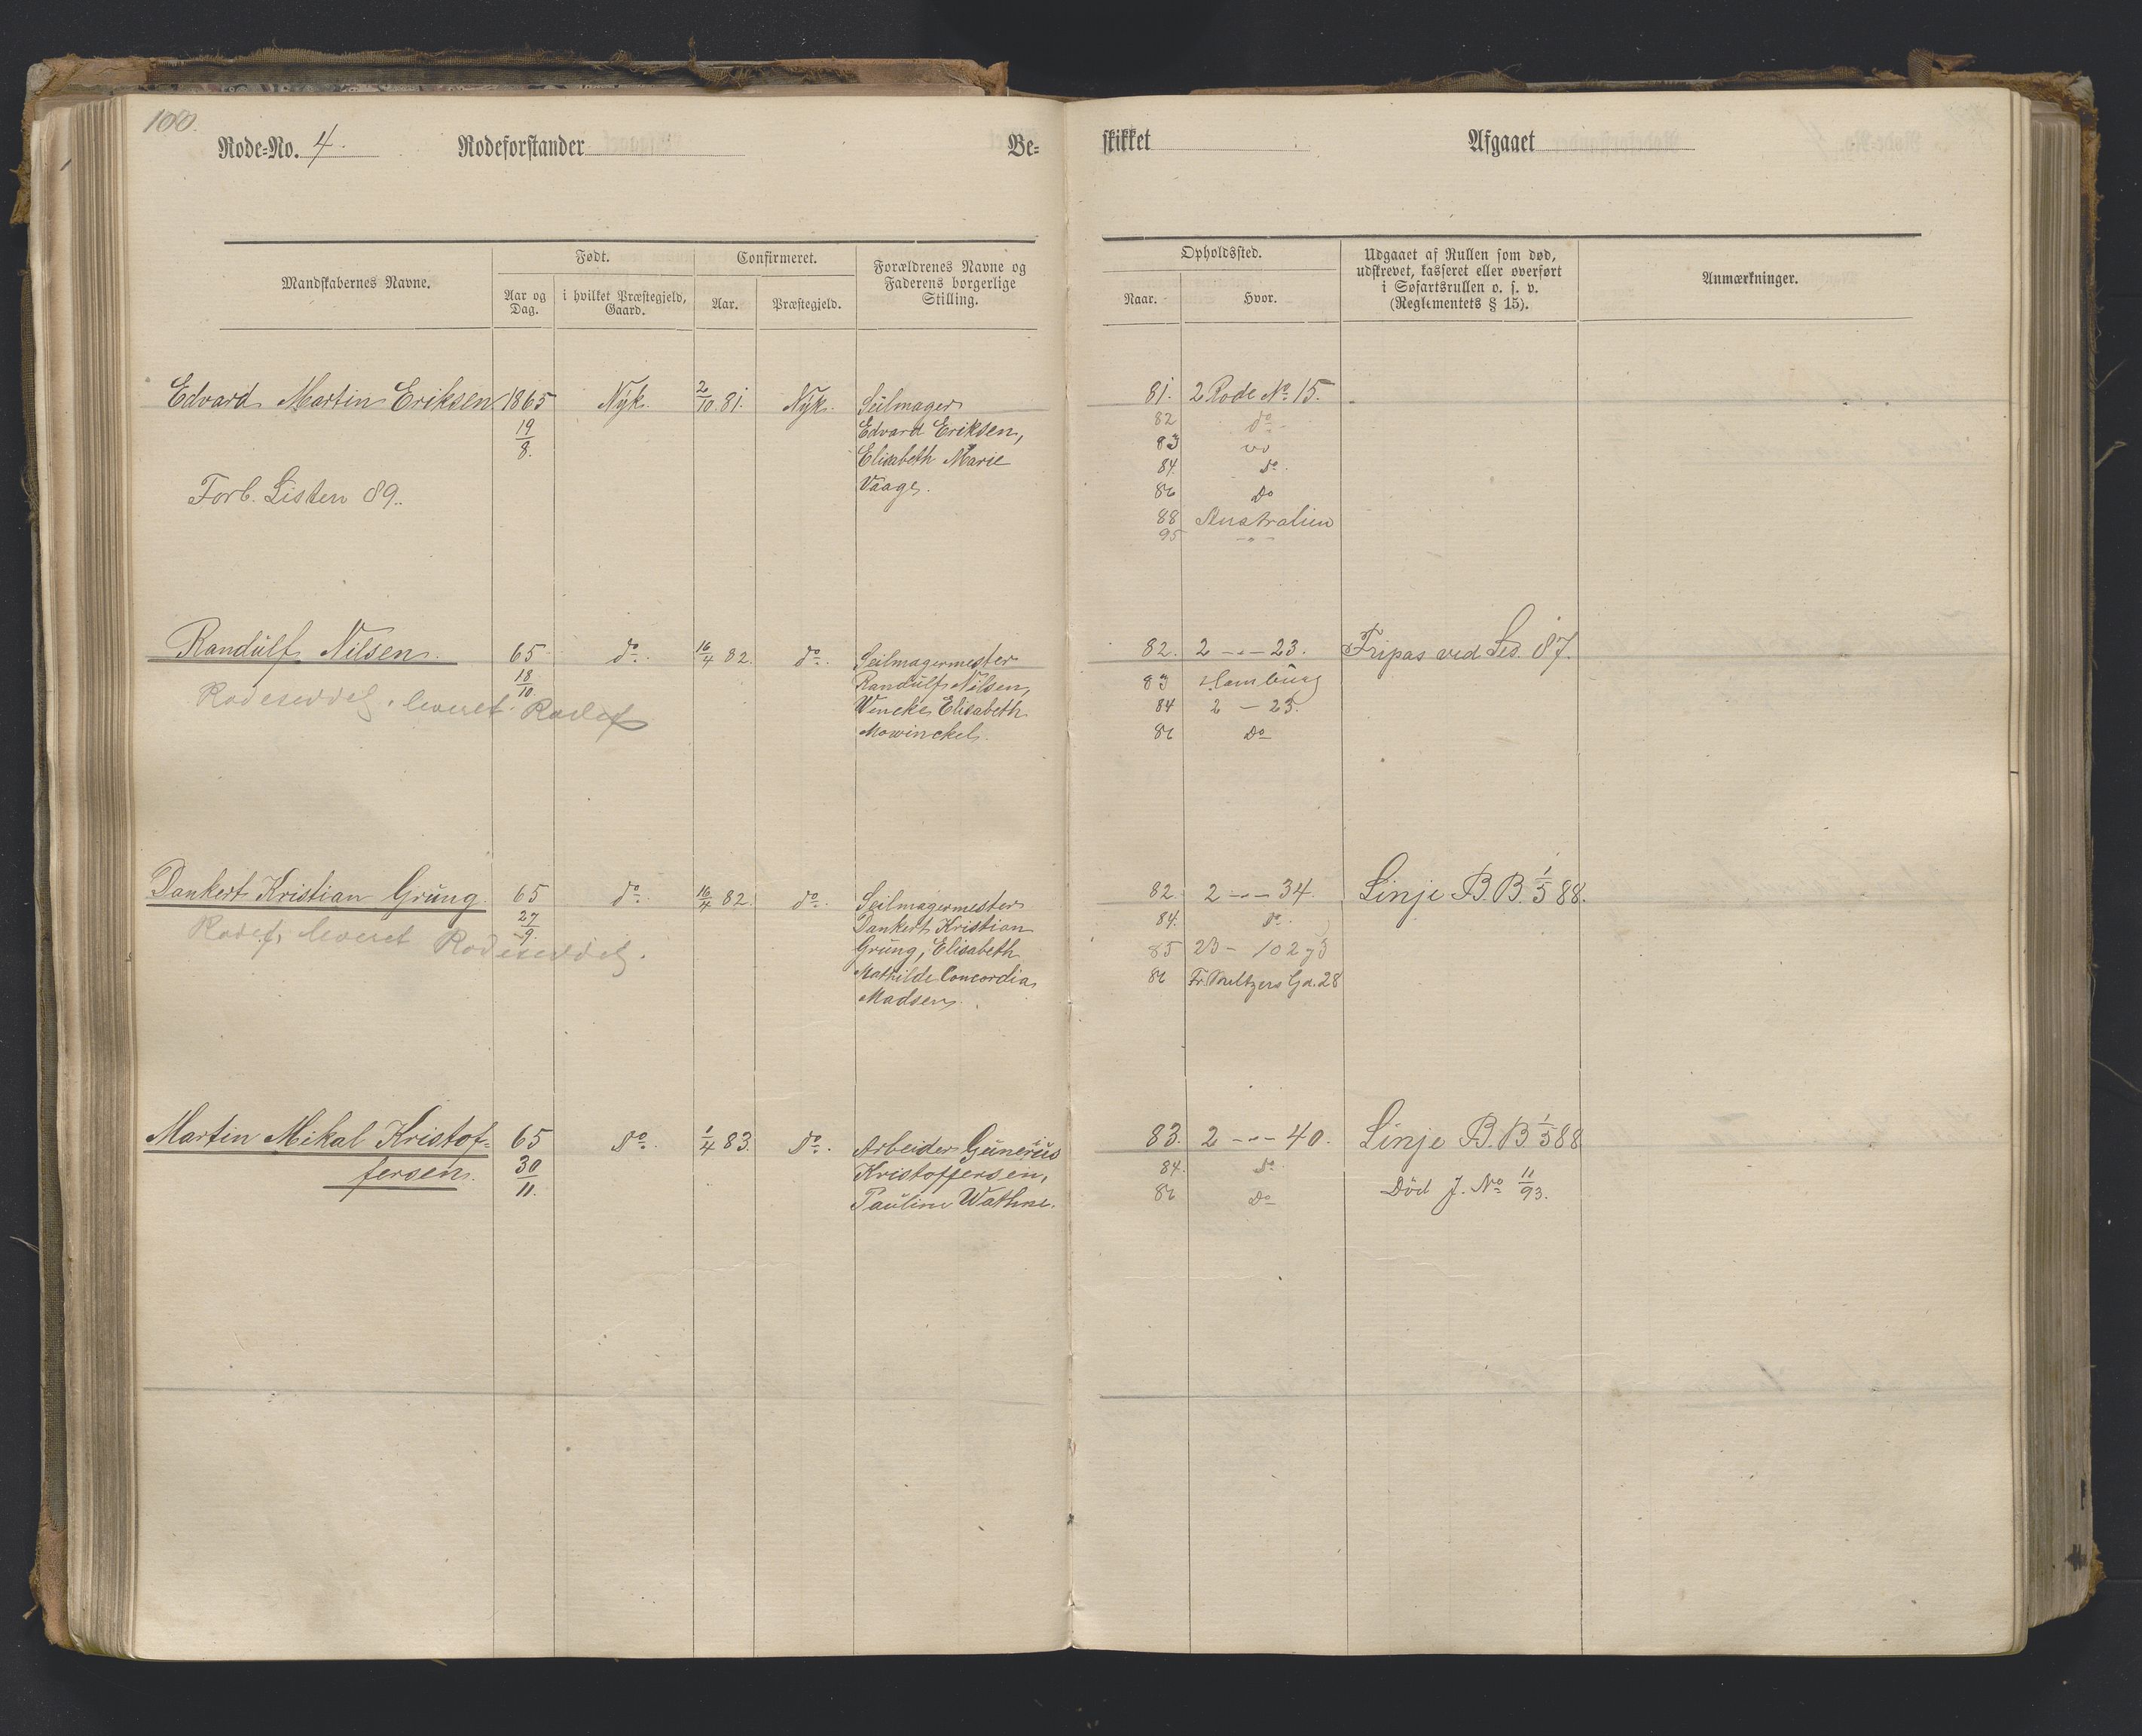 100.
Rode-No. 4. Rodeforstander Be-
skikket Afgaaet
Mandskabernes Navne. Født. Confirmeret. Forældrenes Navne og Faderens borgerlige Stilling.
Aar og Dag. i hvilket Præstegjeld, Gaard. Aar. Præstegjeld.
Opholdssted. Udgaaet af Rullen som død, udskrevet, kasseret eller overført i Søfartsrullen o. s. v. (Reglementets § 15). Anmærkninger.
Naar. Hvor.
Edvard Martin Eriksen 1865 Nyk. 2/10 81. Nyk. Seilmager
19/8. Edvard Eriksen,
Elisabeth Marie
Forb. Listen 89. Vaage.
81. 2 Rode No 15.
82 do
83 do
84. do
86 Do
88 Australien
95 - " -
Randulf Nilsen. 65 do. 16/4 82. do. Seilmagermester
18/10. Randulf Nilsen,
Rodeseddel leveret Rodef Wencke Elisabeth
Mowinckel.
82. 2 - " - 23. Fripas ved Ses. 87.
83 Hamburg
84 2 - 23.
86 Do
Dankert Kristian Grung 65 do. 16/4 82. do. Seilmagermester
27/9. Dankert Kristian
Rodef. leveret Rodeseddel. Grung, Elisabeth
Mathilde Concordia
Madsen.
82. 2 - " - 34. Linje B.B. 1/5 88.
84. do.
85 23 -
86 Fr. Meltzers Gd. 28
Martin Mikal Kristof- 65 do. 1/4 83. do. Arbeider Gunerius
fersen. 30/11. Kristoffersen,
Pauline Wathne.
83. 2 - " - 40. Linje B.B 1/5 88
84. do. Død J. No 11/93.
86 Do